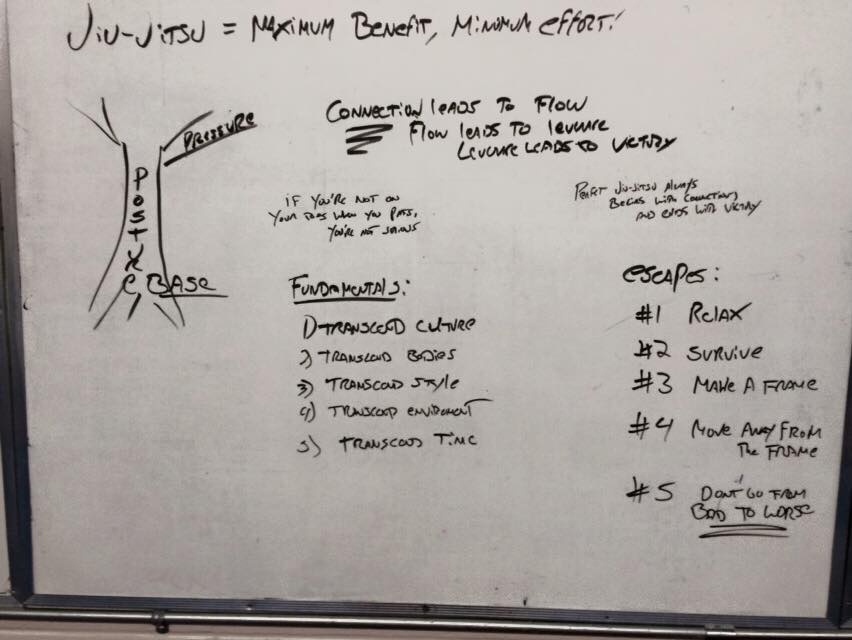 JIU-JITSU = MAXIMUM BENEFIT, MINIMUM EFFORT!
PRESSURE
POSTURE
BASE
CONNECTION LEADS TO FLOW
FLOW LEADS TO LEVERAGE
LEVERAGE LEADS TO VICTORY
IF YOU'RE NOT ON
YOUR TOES WHEN YOU PASS,
YOU'RE NOT SERIOUS
JIU-JITSU ALWAYS
BEGINS WITH CONNECTION,
AND ENDS WITH VICTORY
FUNDAMENTALS:
1) TRANSCEND CULTURE
2) TRANSCEND BODIES
3) TRANSCEND STYLE
4) TRANSCEND ENVIROMENT
5) TRANSCEND TIME
ESCAPES:
#1 RELAX
#2 SURVIVE
#3 MAKE A FRAME
#4 MOVE AWAY FROM
THE FRAME
#5 DON'T GO FROM
BAD TO WORSE